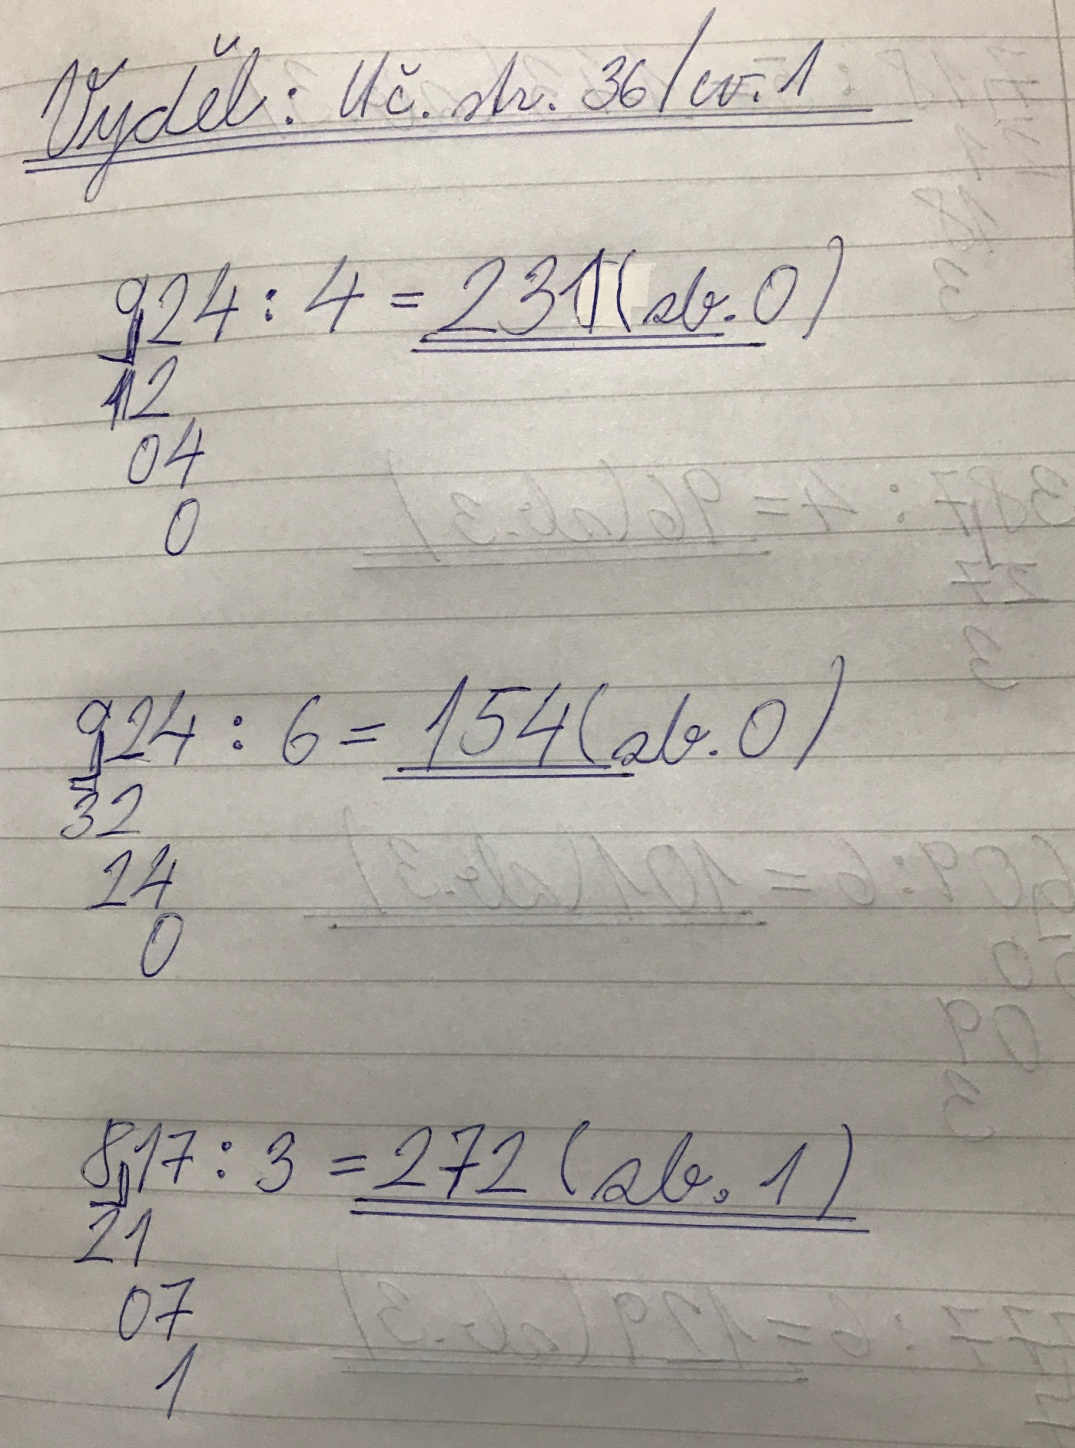 Vyděl: Uč. str. 36/cv. 1
924 : 4 = 231 (zb. 0)
12
04
0
924 : 6 = 154 (zb. 0)
32
24
0
817 : 3 = 272 (zb. 1)
21
07
1